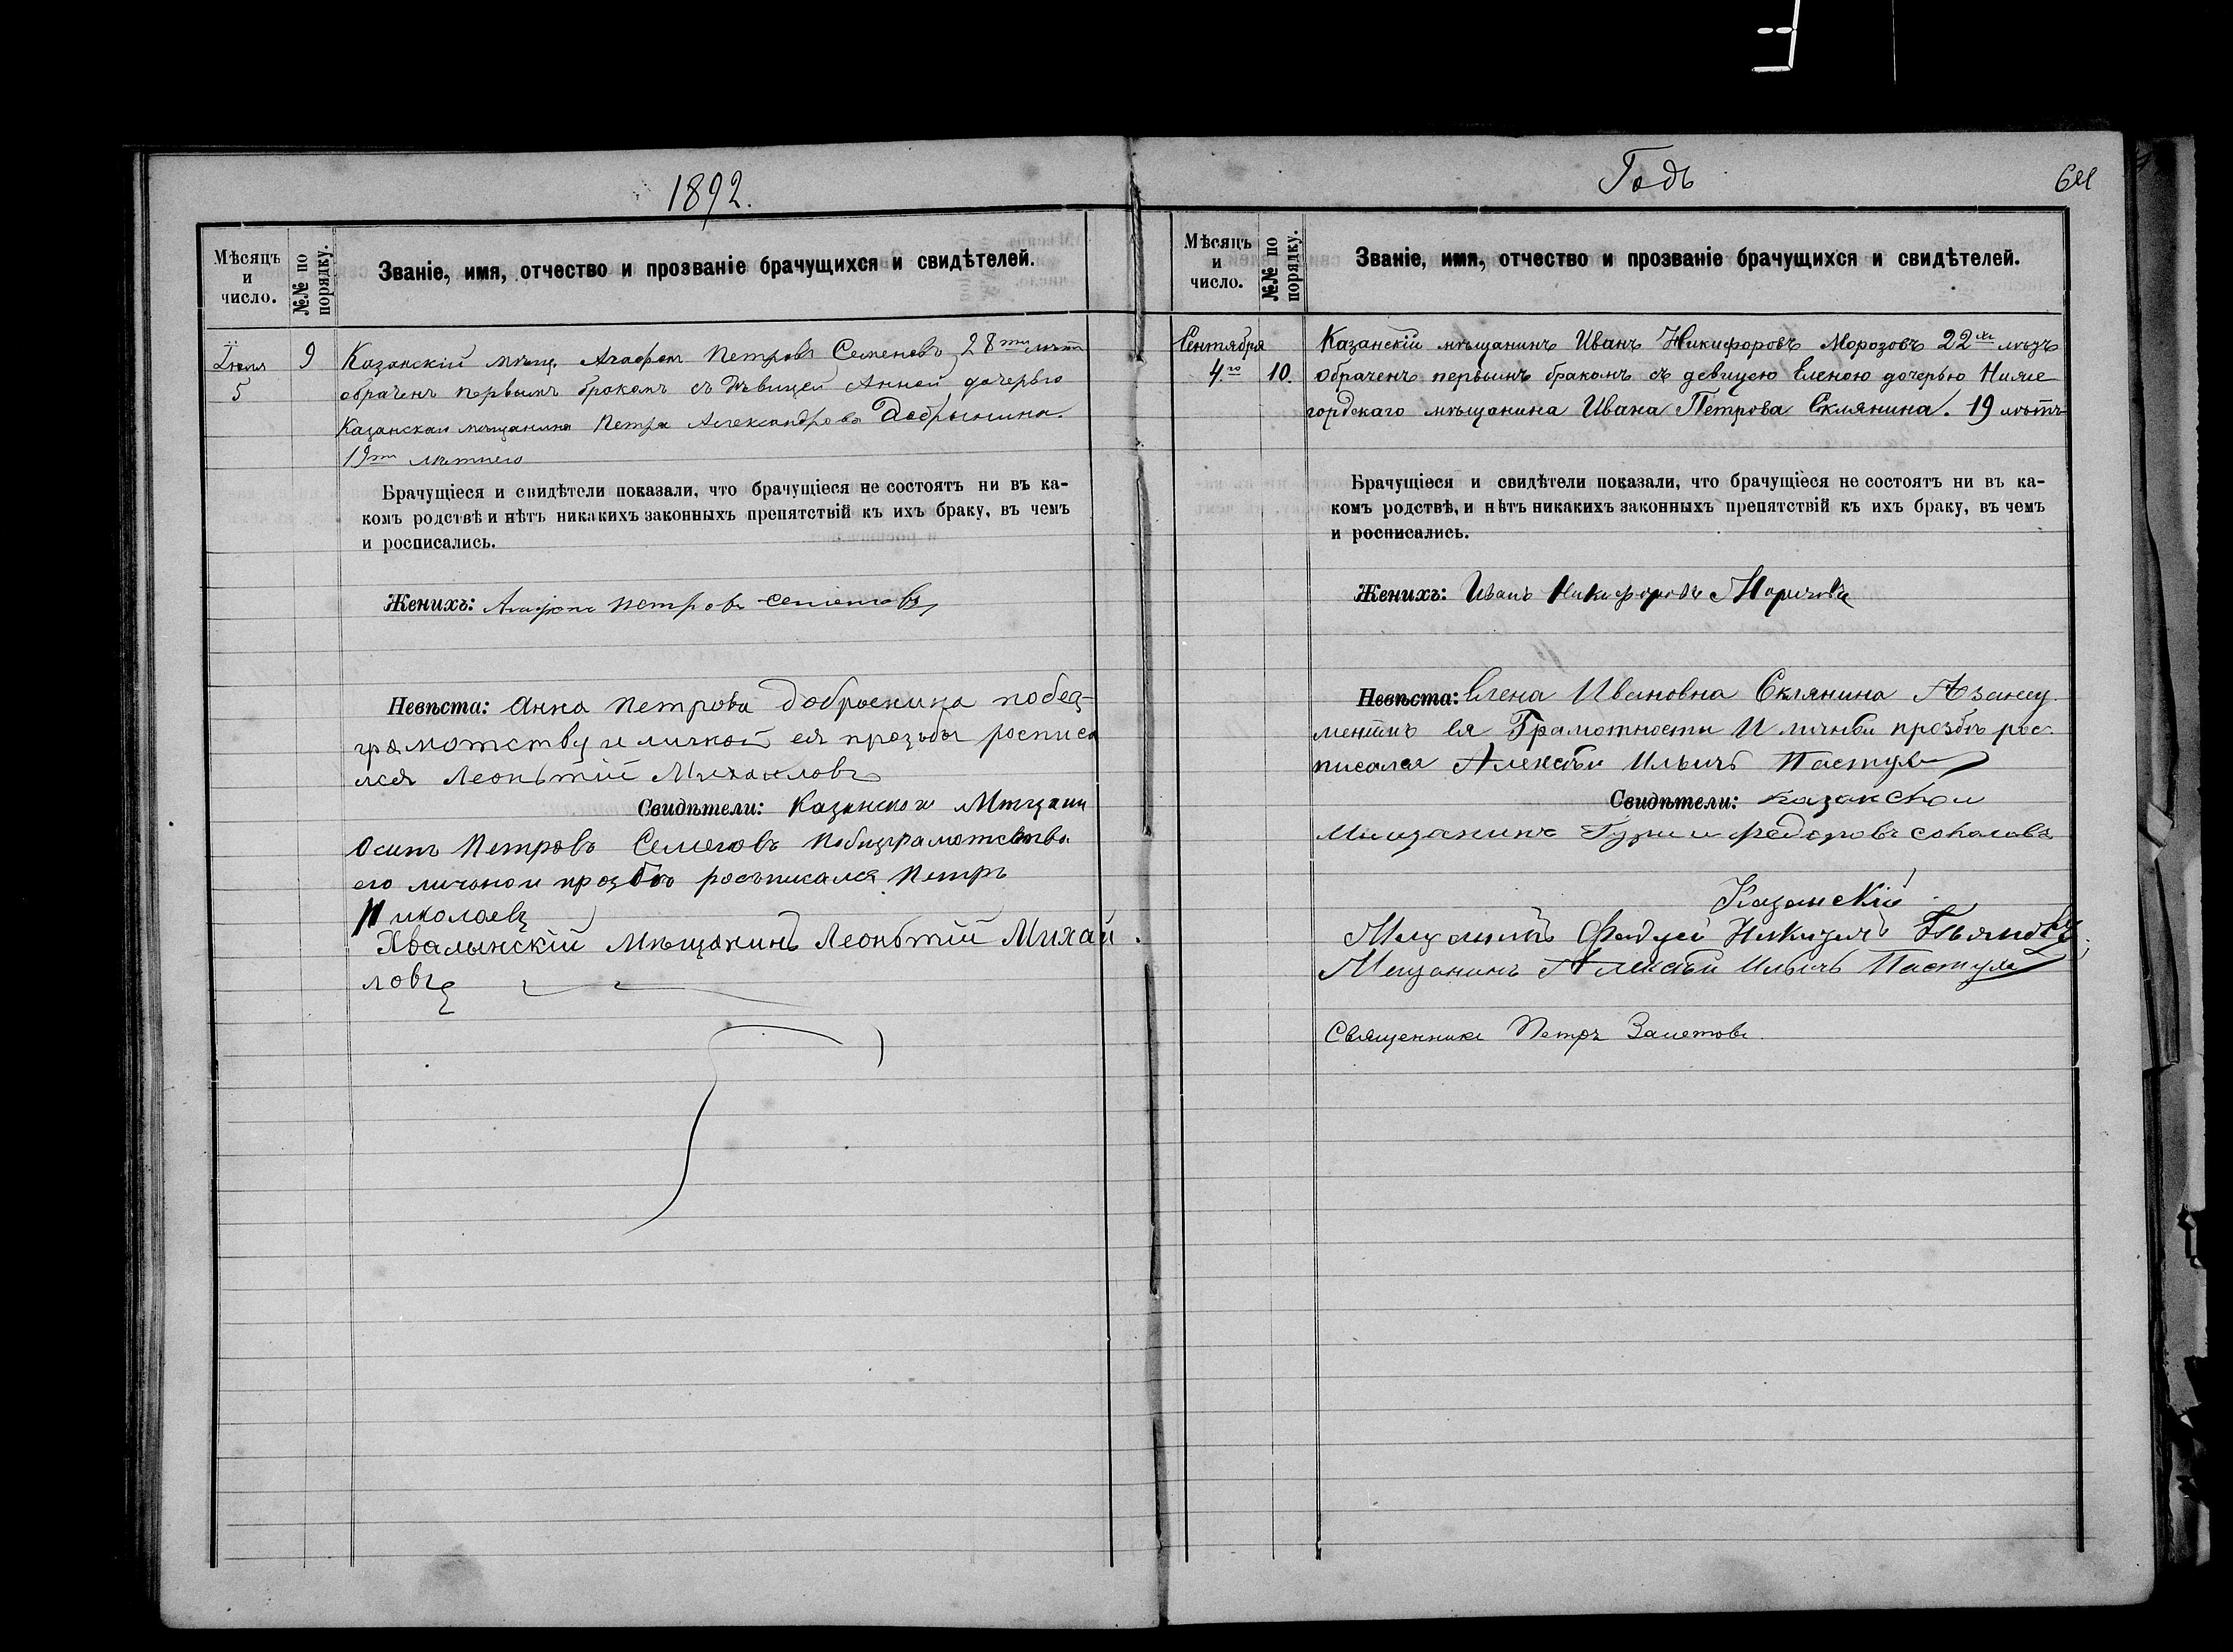 1892.
Мѣсяцъ и число.
№.№ по порядку.
Званіе, имя, отчество и прозваніе брачущихся и свидѣтелей.
5
9
Казанскій мѣщ. Агафон Петровъ Семеновъ 28ми лѣт
обраченъ первымъ бракомъ съ дѣвицей Анной дочерью
Казанскаго мѣщанина Петра Александрова Добрынина.
19ти лѣтнего
Брачущіеся и свидѣтели показали, что брачущіеся не состоятъ ни въ ка-
комъ родствѣ и нѣтъ никакихъ законныхъ препятствій къ ихъ браку, въ чемъ
и росписались.
Женихъ: Агафонъ Петровъ Семеновъ
Невѣста: Анна Петрова Добрынина побез-
грамотству и личной ея прозьбы росписа
лся Леонтій Михаиловъ
Свидѣтели: Казанской
Осипъ Петровъ Семеновъ
его личьной прозбѣ росъписался Петръ
Николаевъ
Хвалынскій Мѣщанинъ Леонтій Михай
ловъ
Годъ
Мѣсяцъ и число.
№.№ по порядку.
Званіе, имя, отчество и прозваніе брачущихся и свидѣтелей.
Сентября
4.го
10.
Казанскій мѣщанинъ Иванъ Никифоровъ Морозовъ 22хъ
обраченъ первымъ бракомъ съ девицею Еленою дочерью Ниже
гордскаго мѣщанина Ивана Петрова Склянина. 19 лѣтъ
Брачущіеся и свидѣтели показали, что брачущіеся не состоятъ ни въ ка-
комъ родствѣ, и нѣтъ никакихъ законныхъ препятствій къ ихъ браку, въ чемъ
и росписались.
Женихъ: Иванъ Никифоровъ Морозовъ
Невѣста: Елена Ивановна Склянина
Грамотности И прозбѣ рос
писался Алексѣй Ильичъ
Свидѣтели: Казанской
Федоровъ Соколовъ
Казанскій
Алексѣй Ильичъ
Священникъ Петръ Залетовъ.